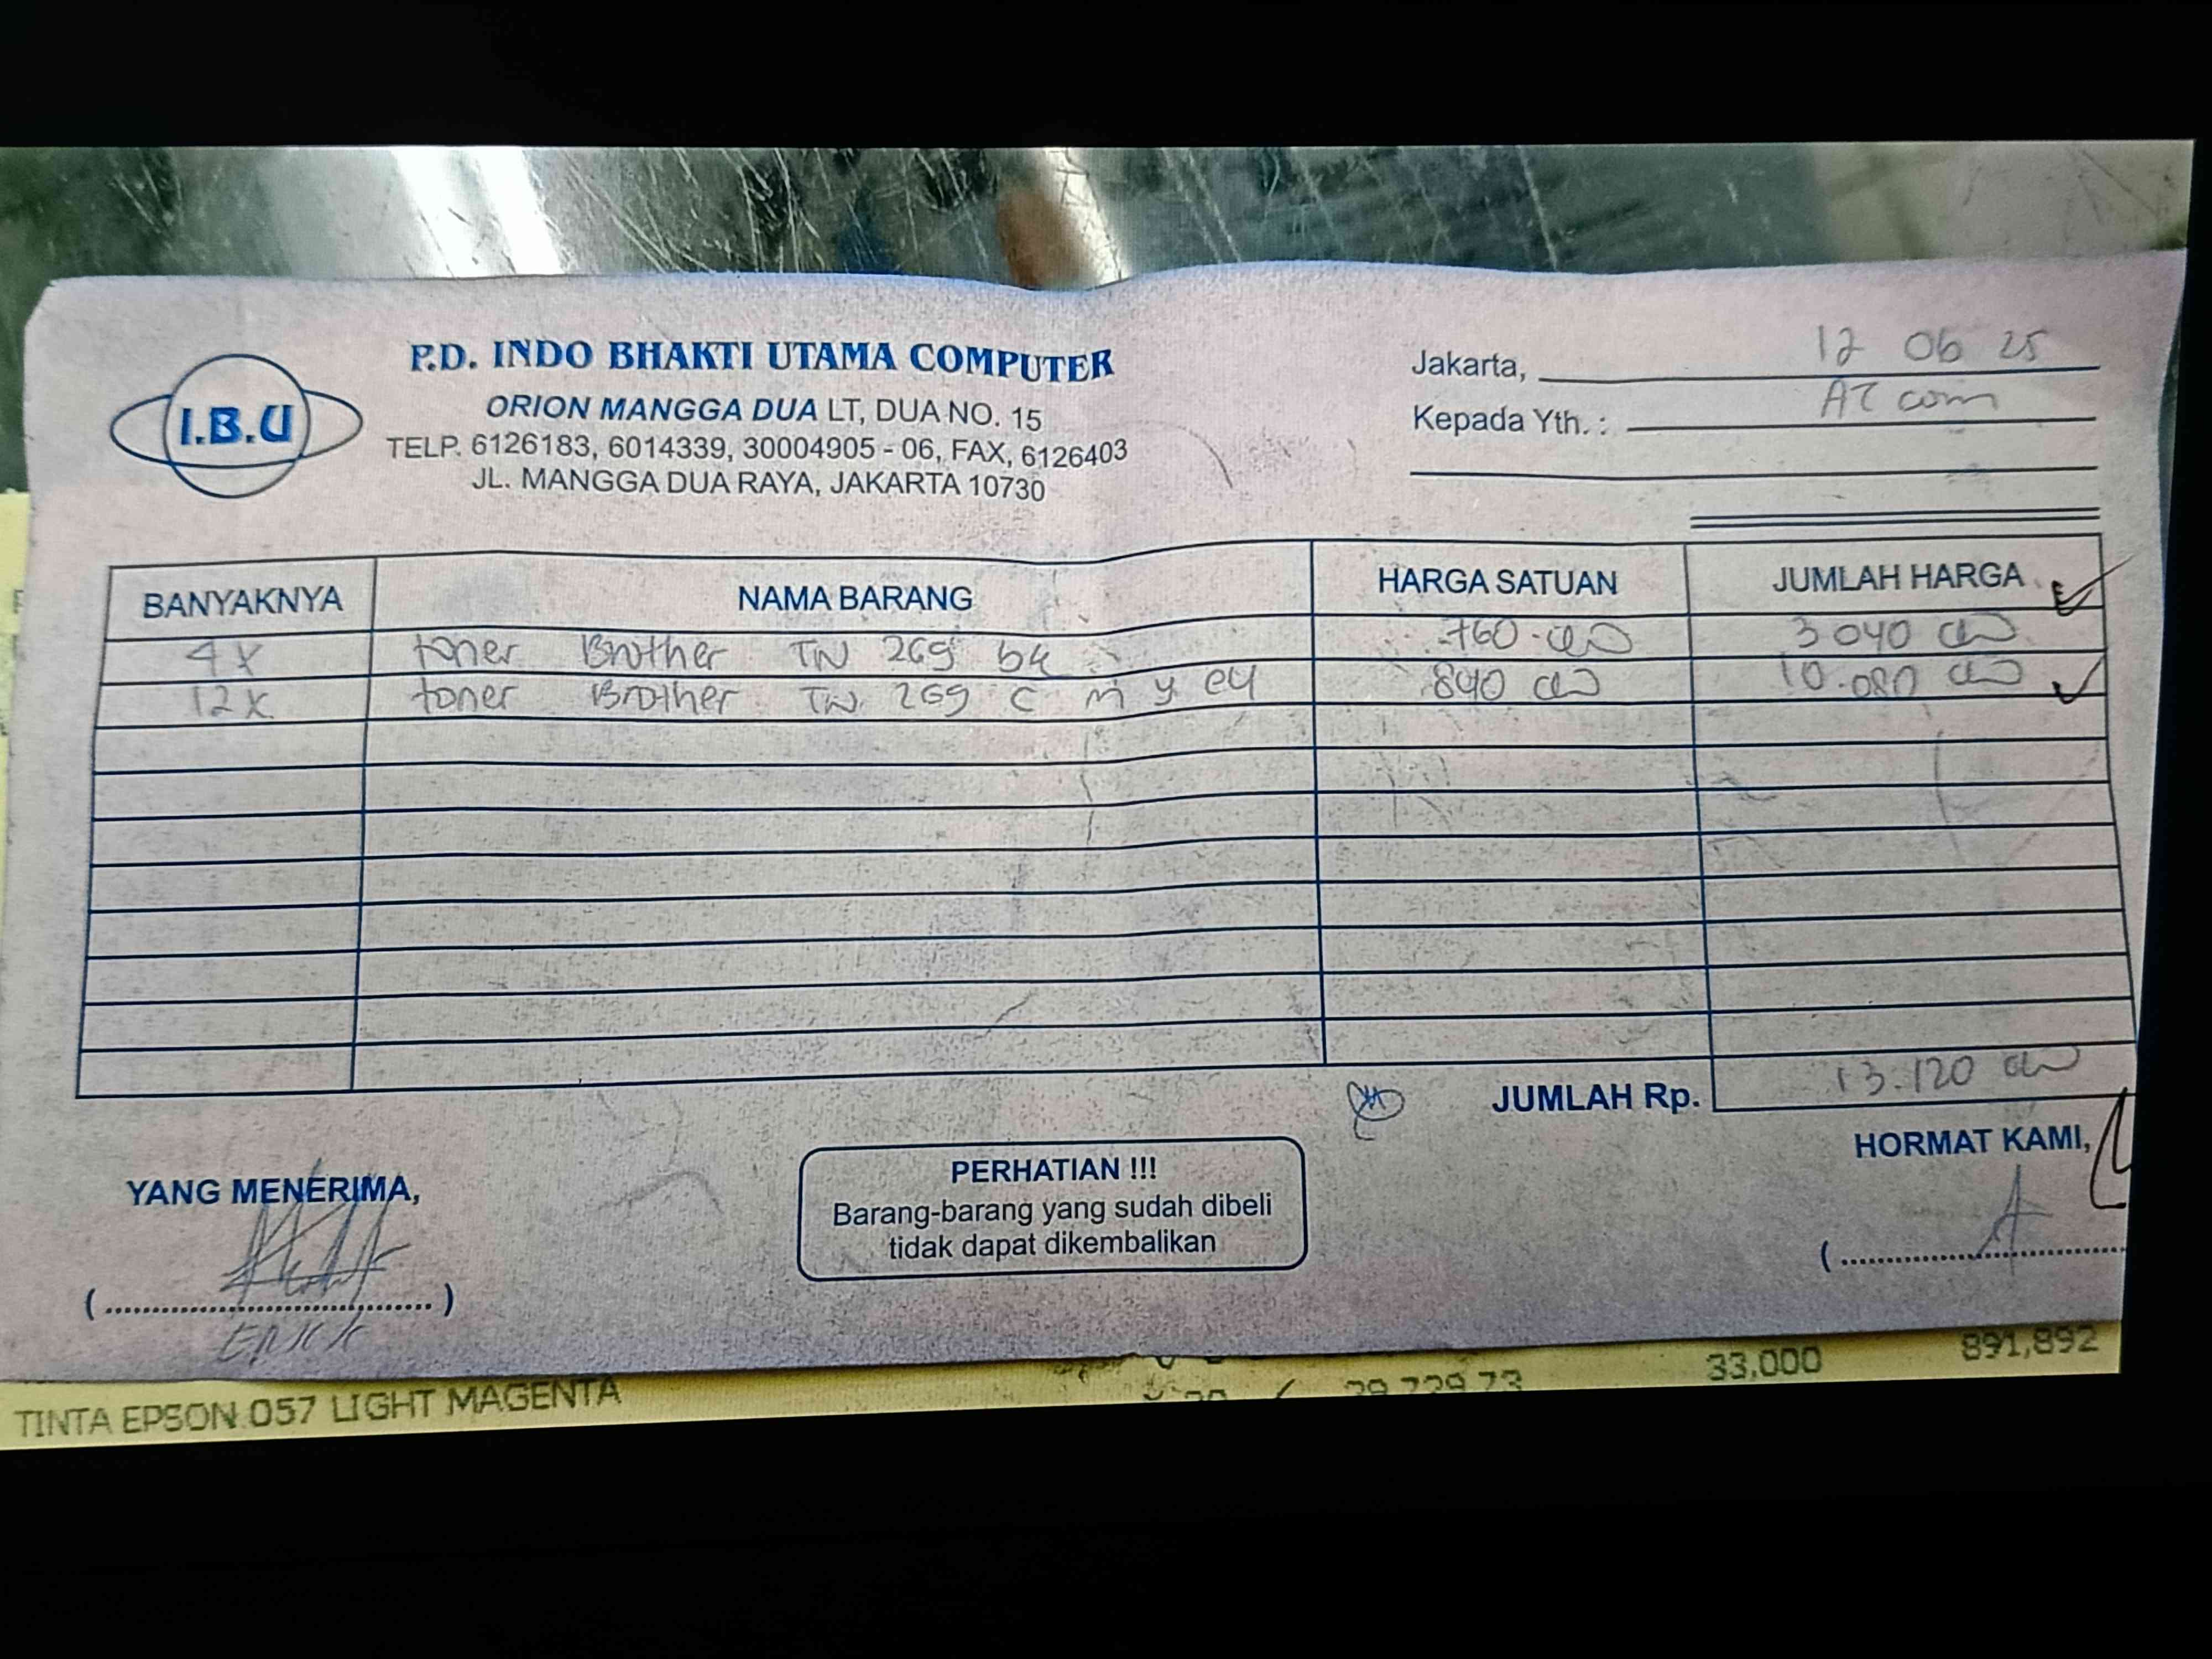 P.D. INDO BHAKTI UTAMA COMPUTER
I.B.U
ORION MANGGA DUA LT, DUA NO. 15
TELP. 6126183, 6014339, 30004905 - 06, FAX, 6126403
JL. MANGGA DUA RAYA, JAKARTA 10730
Jakarta, 12 06 25
Kepada Yth. : AT com
BANYAKNYA NAMA BARANG HARGA SATUAN JUMLAH HARGA
4x toner Brother TN 269 bk 760.000 3 040 000
12x toner Brother TN 269 c m y e4 840 000 10.080 000
JUMLAH Rp. 13.120 000
YANG MENERIMA,
PERHATIAN !!!
Barang-barang yang sudah dibeli
tidak dapat dikembalikan
HORMAT KAMI,
(........................)
(........................
TINTA EPSON 057 LIGHT MAGENTA 33,000 891,892